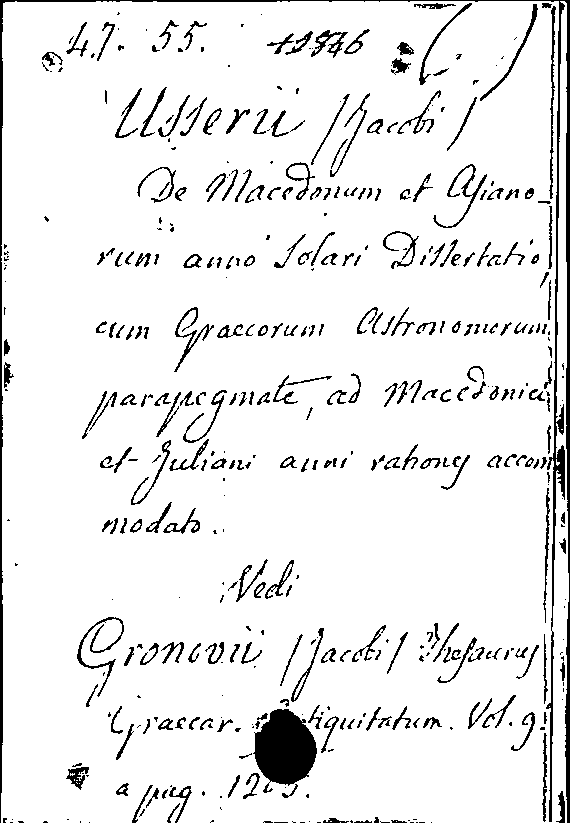 47. 55. +2846 ( )
Usserii /Jacobi/
De Macedonum et Asiano-
rum anno Solari Dissertatio,
cum Graecorum Astronomorum
parapegmate, ad Macedonici
et Juliani anni rationes accom
modato.
Vedi
Gronovii /Jacobi/ Thesaurus
Graecar. Vol. 9.
a pag.